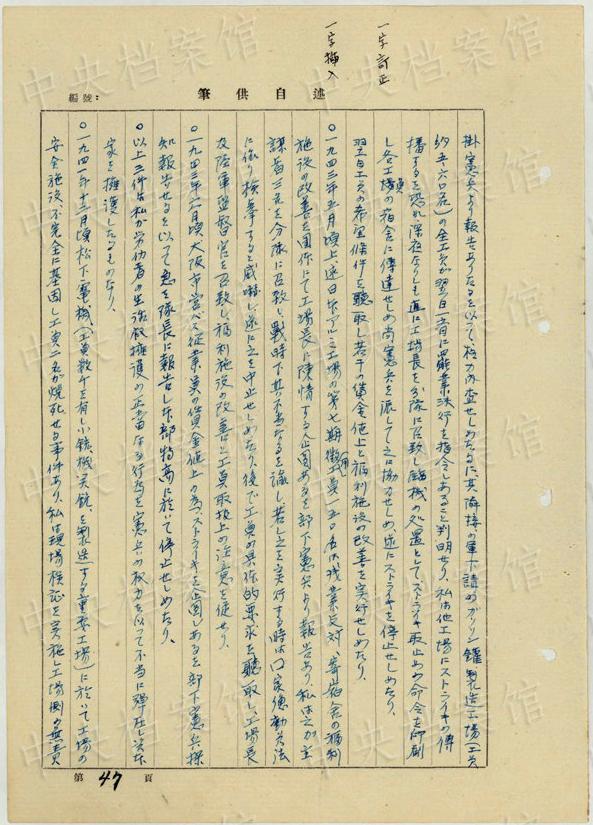 一字訂正
一字挿入
編號：
筆供自述
掛憲兵より報告ありたるを以って極力内査せしめたるに其隣接の軍下請のガソリン罐製造工場（工員
約五、六〇〇名）の全工員が翌日一斉に罷業決行を指令しあること判明せり、私は他工場にストライキの傳
播するを恐れ深夜なりしも直に工場長を分隊に召致し臨機の処置としてストライキ取止めの命令を印刷
し各工員の宿舎に傳達せしめ尚憲兵を派して之に協力せしめ、遂にストライキを停止せしめたり、
翌日工員の希望條件を聴取し若干の賃金値上と福利施設の改善を実行せしめたり、
〇一九四三年五月頃上述日本アルミ工場の第七期徴用工員一五〇名は残業反対、寄宿舎の福利
施設の改善を團体にて工場長に陳情する企図あるを部下憲兵より報告あり、私は之が主
謀者三名を分隊に召致し、戦時下其不当なるを論し若し之を実行する時は國家総動員法
に依り検挙すると威嚇し遂に之を中止せしめたり、後で工員の具体的要求を聴取し、工場長
及陸軍監督官を召致し、福利施設の改善と工員取扱上の注意を促せり、
〇一九四三年六月頃大阪市営バス従業員の賃金値上の為、ストライキを企図しあるを部下憲兵探
知報告せるを以って急を隊長に報告し本部特高に於いて停止せしめたり、
〇以上三件は私が労仂者の生活擁護の正当なる行為を憲兵の权力を以って不当に彈圧し資本
家を擁護したるものなり、
〇一九四一年十二月頃松下電機、（工員数千を有し銃機を製造する重要工場）に於いて工場の
安全施設不完全に基因し工員二名が焼死せる事件あり、私は現場検証を実施し工場側の無責
第 47 頁
中央档案馆